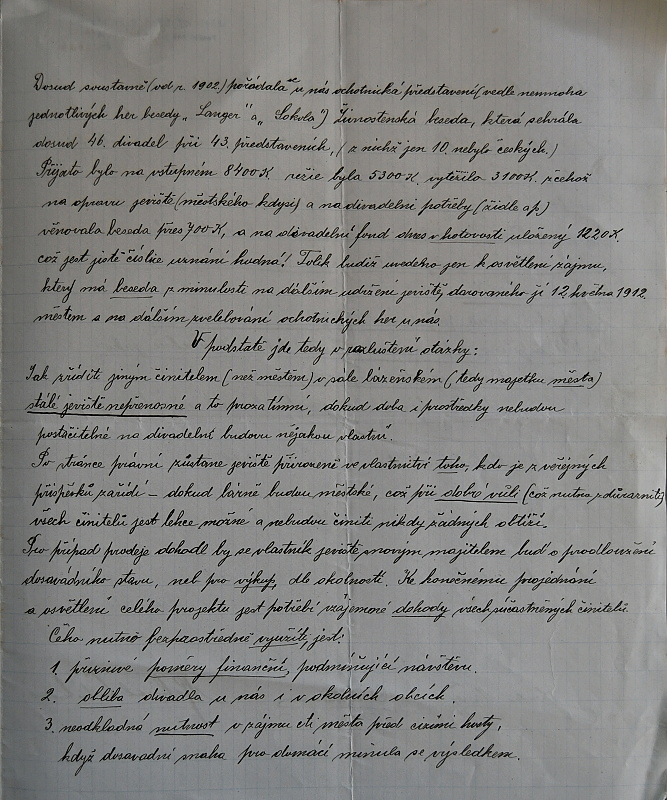 Dosud soustavně (od r. 1902.) pořádala se u nás ochotnická představení (vedle nemnoha
jednotlivých her besedy „Langer" a „Sokola") Živnostenská beseda, která sehrála
dosud 46. divadel při 43. představeních, (z nichž jen 10. nebylo českých.)
Přijato bylo na vstupném 8400 K. režie byla 5300 K. vytěžilo 3100 K. z čehož
na opravu jeviště (městského kdysi) a na divadelní potřeby (židle a p.)
věnovala beseda přes 700 K, a na divadelní fond dnes v hotovosti uložený 1220 K.
což jest jistě číslice uznání hodná! Tolik budiž uvedeno jen k osvětlení zájmu,
který má beseda z minulosti na dalším udržení jeviště, darovaného jí 12. května 1912.
městem a na dalším zvelebování ochotnických her u nás.
V podstatě jde tedy v rozluštění otázky:
Jak zříditi jiným činitelem (než městem) v sale lázeňském (tedy majetku města)
stálé jeviště nepřenosné a to prozatímní, dokud doba i prostředky nebudou
postačitelné na divadelní budovu nějakou vlastní.
Po stránce právní zůstane jeviště přirozeně ve vlastnictví toho, kdo je z veřejných
příspěvků zařídí – dokud lázně budou městské, což při dobré vůli (což nutno zdůraznit)
všech činitelů jest lehce možné a nebudou činiti nikdy žádných obtíží.
Pro případ prodeje dohodl by se vlastník jeviště s novým majitelem buď o prodloužení
dosavadního stavu, neb pro výkup, dle okolností. Ke konečnému projednání
a osvětlení celého projektu jest potřebí vzájemné dohody všech súčastněných činitelů.
Čeho nutno bezprostředně využíti, jest:
1. příznivé poměry finanční, podmiňující návštěvu.
2. obliba divadla u nás i v okolních obcích.
3. neodkladná nutnost v zájmu cti města před cizími hosty,
když dosavadní snaha pro domácí minula se výsledkem.